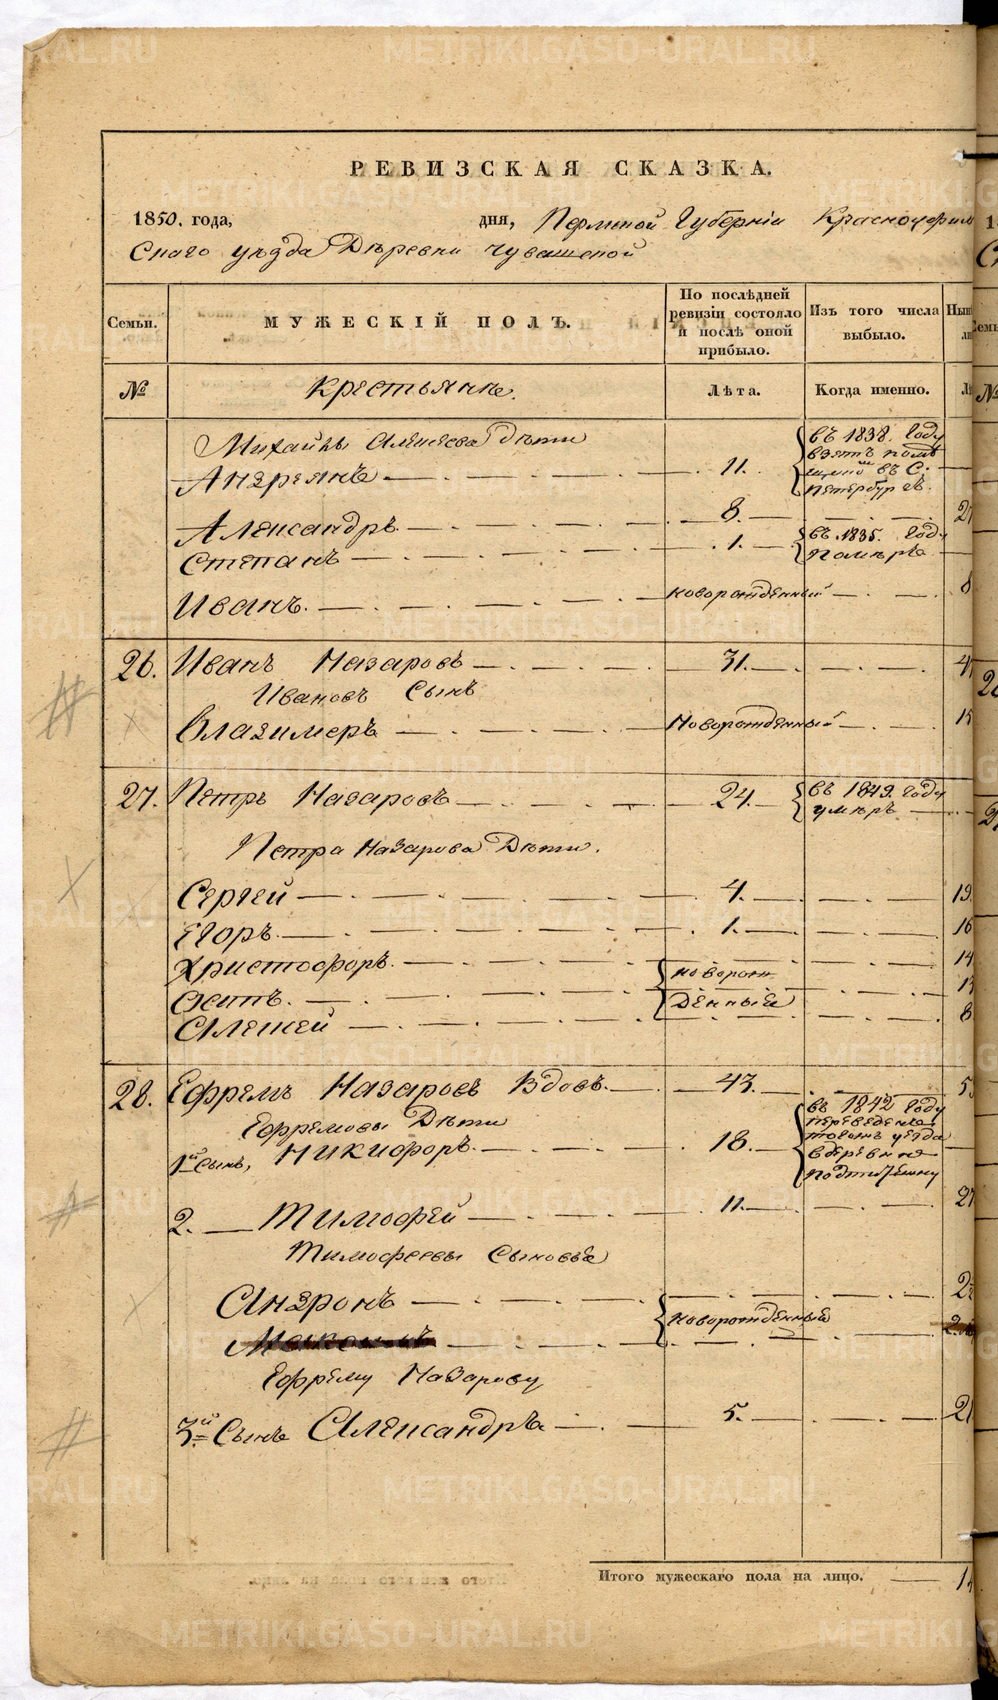 РЕВИЗСКАЯ СКАЗКА.
1850. года, дня, Пермской Губерніи Красноуфим
Скаго уезда Деревни Чувашской
Семьи.
МУЖЕСКІЙ ПОЛЪ.
По послѣдней ревизіи состояло и послѣ оной прибыло.
Изъ того числа выбыло.
№
Крестьяне.
Лѣта.
Когда именно.
Михайлы Алексеева Дети
Андреянъ 11. въ 1838. Году взятъ въ С: Петербургъ.
Александръ 8.
Степанъ 1. въ 1835. Году Померъ
Иванъ. новорожденный 8
26. Иванъ Назаровъ 31.
Ивановъ Сынъ
Владимеръ Новорожденный
27. Петръ Назаровъ 24. въ 1849. году умеръ
Петра Назарова Дети.
Сергей 4. 19.
Егоръ 1. 16
Христофоръ. новорож 14
Осипъ. денныя 13
Алексей 8
28. Ефремъ Назаровъ Вдовъ. 43.
Ефремовы Дети
1й Сынъ, Никифоръ. 18. въ 1842 Году переведенъ уезда в деревню
2. Тимофей 11.
Тимофеевы Сыновья
Андронъ новорожденныя
Ефрему Назарову
3й Сынъ Александръ 5.
Итого мужескаго пола на лицо.
METRIKI.GASO-URAL.RU